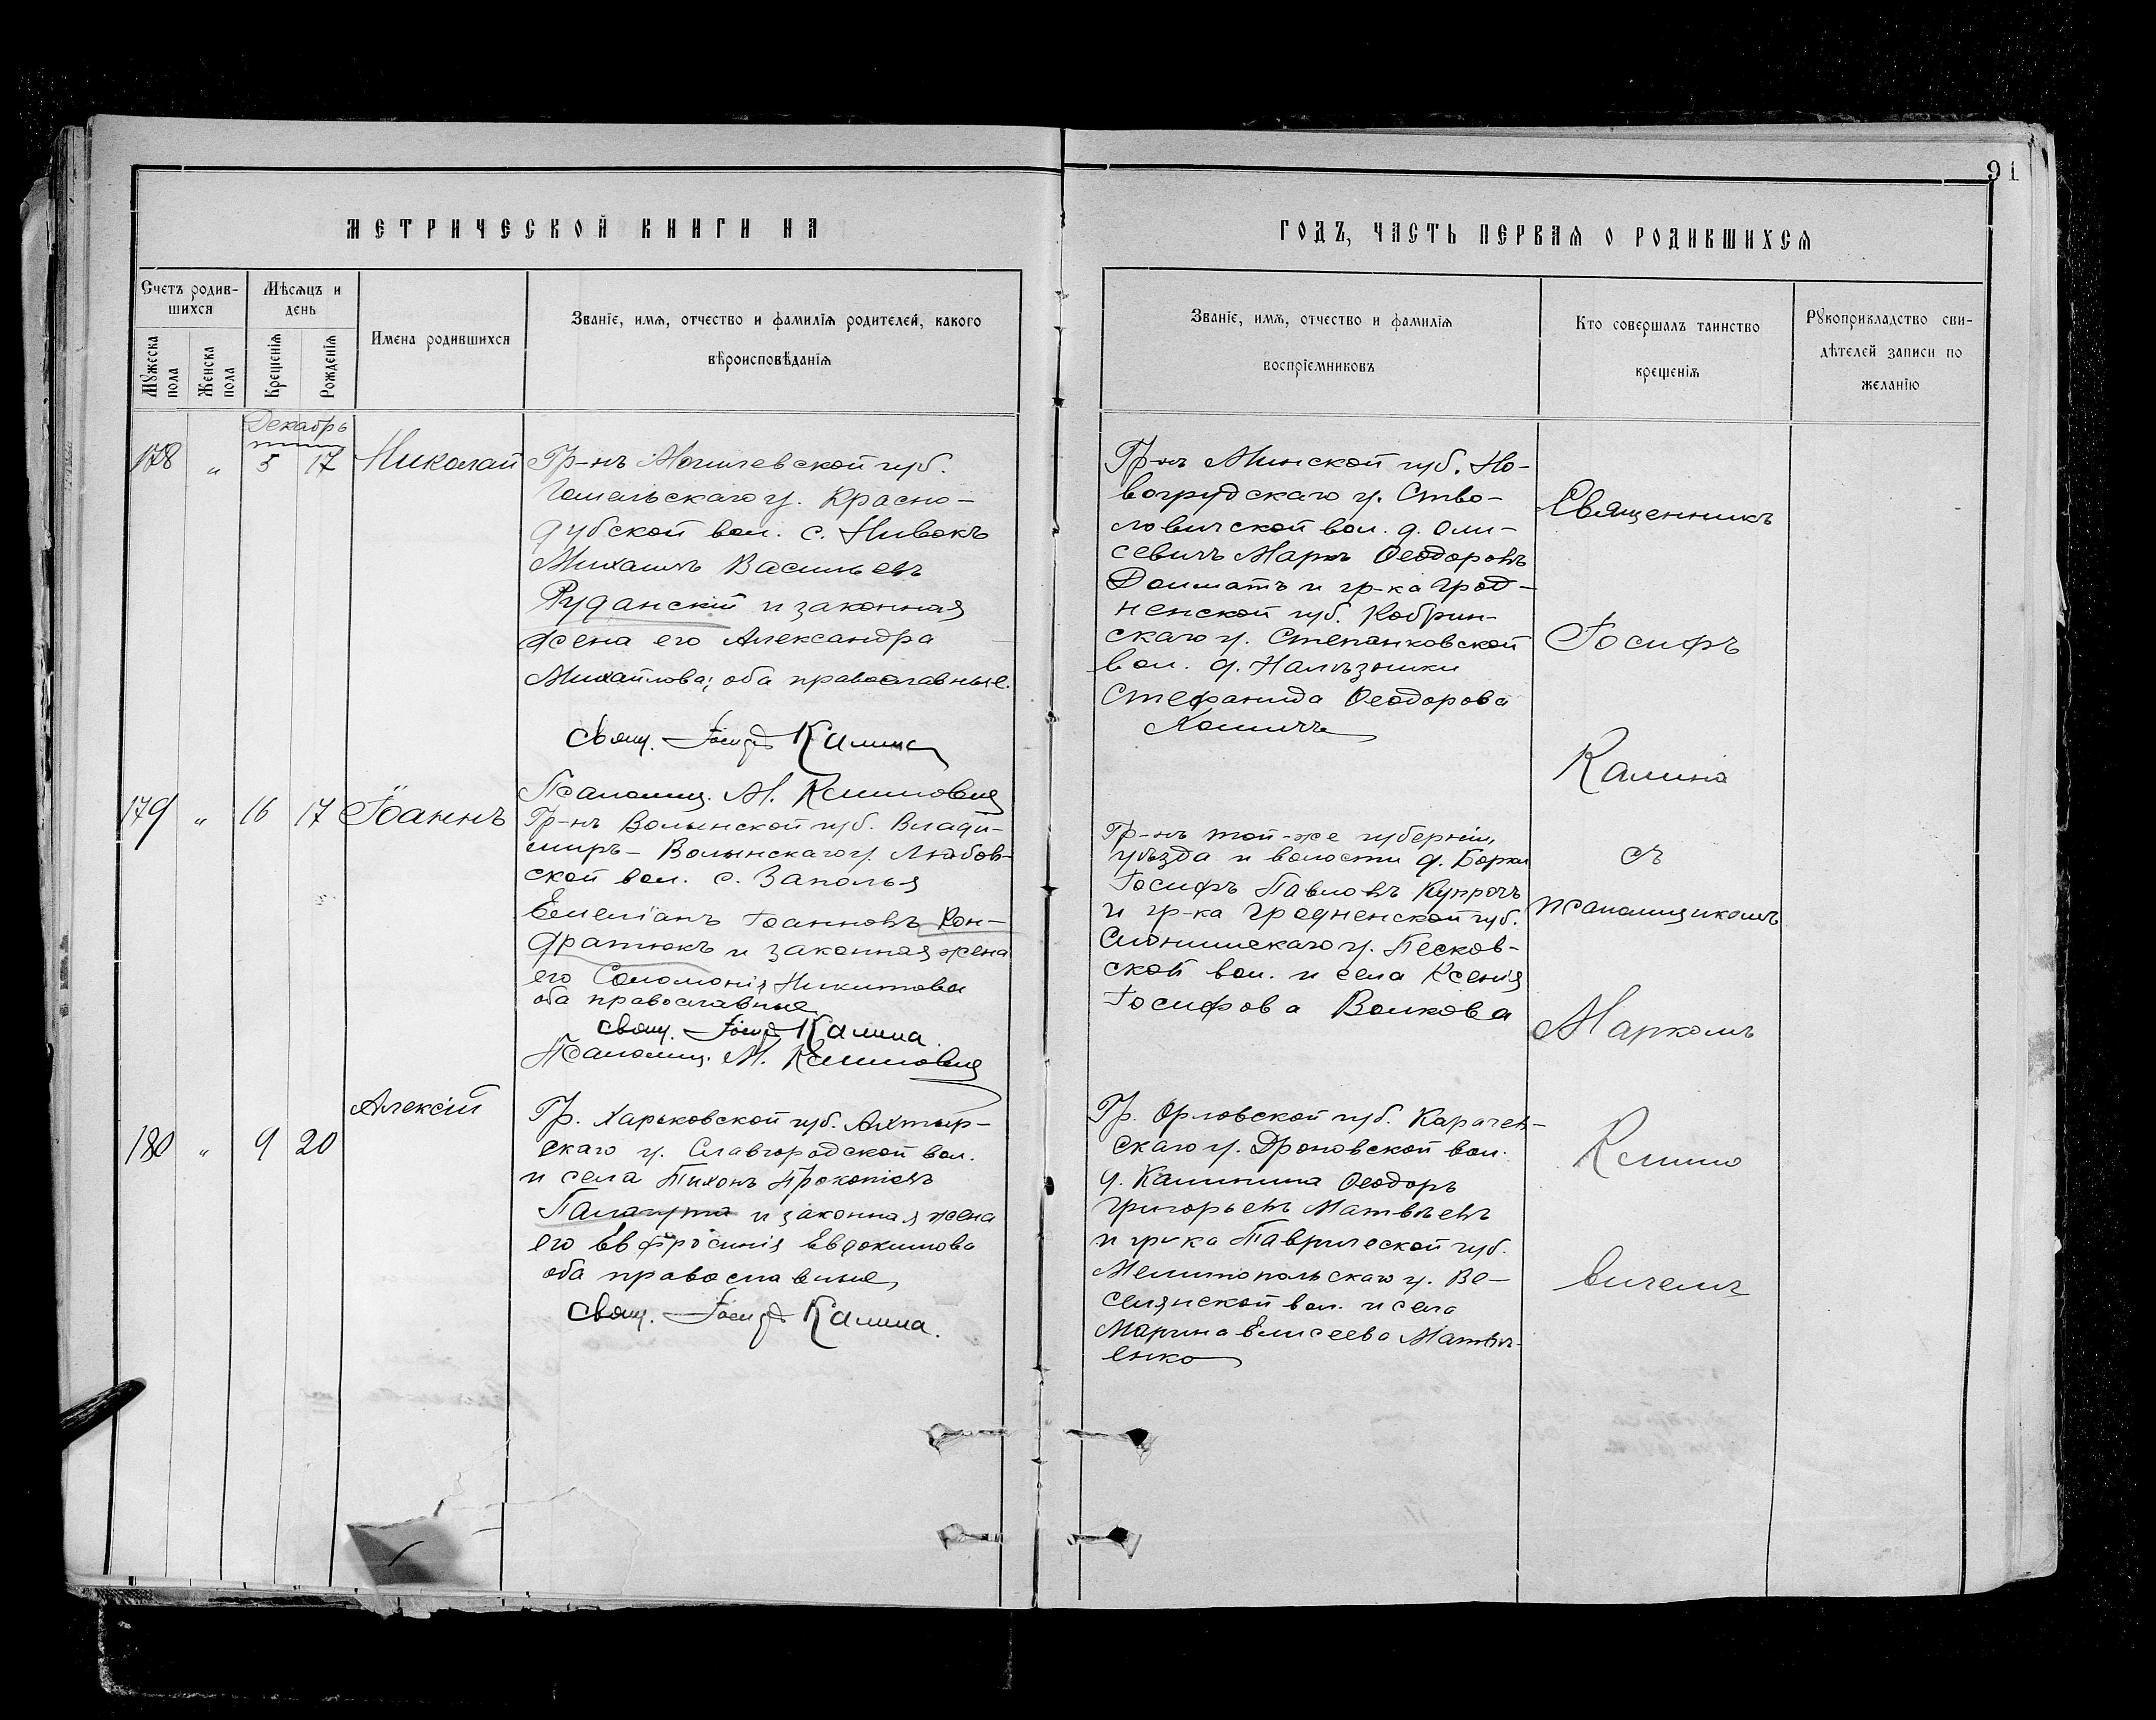 91
МЕТРИЧЕСКОЙ КНИГИ НА
ГОДЪ, ЧАСТЬ ПЕРВАЯ О РОДИВШИХСЯ
Счетъ родив-
шихся
Мужеска пола
Женска пола
Мѣсяцъ и
день
Крещенія
Рожденія
Имена родившихся
Званіе, имя, отчество и фамилія родителей, какого
вѣроисповѣданія
Званіе, имя, отчество и фамилія
воспріемниковъ
Кто совершалъ таинство
крещенія
Рукоприкладство сви-
дѣтелей записи по
желанію
Декабрь
178 " 5 17 Николай
Гр-нъ Могилевской губ.
Гомельскаго у. Красно-
дубской вол. с. Нивокъ
Михаилъ Васильевъ
Руданскій и законная
жена его Александра
Михайлова; оба православные.
Свящ. Іосифъ Калина
Псаломщ. М. Климовичъ
Гр-нъ Минской губ. Но-
вогрудскаго у. Ство-
ловичской вол. д.
Маркъ Ѳеодоровъ
и гр-ка Грод-
ненской губ. Кобрин-
скаго у. Степанковской
вол. д.
Стефанида Ѳеодорова
179 " 16 17 Іоаннъ
Гр-нъ Волынской губ. Влади-
миръ-Волынскаго у. Любов-
ской вол. с. Заполья
Емеліанъ Іоанновъ Кон-
дратюкъ и законная жена
его Соломонія Никитова
оба православные
Свящ. Іосифъ Калина.
Псаломщ. М. Климовичъ
Гр-нъ той-же губерніи,
уѣзда и волости д. Борки
Іосифъ Павловъ
и гр-ка Гродненской губ.
Слонимскаго у. Песков-
ской вол. и села Ксенія
Іосифова Волкова
180 " 9 20 Алексій
Гр. Харьковской губ. Ахтыр-
скаго у. Славгородской вол.
и села Тихонъ Прокопіевъ
и законная жена
его Евфросинія Евдокимова
оба православные,
Свящ. Іосифъ Калина.
Гр. Орловской губ. Карачев-
скаго у. Дроновской вол.
д. Калинина Ѳеодоръ
Григорьевъ Матвѣевъ
и гр-ка Таврической губ.
Мелитопольскаго у. Ве-
селянской вол. и села
Марина Елисеева Матвѣ-
енко
Священникъ
Іосифъ
Калина
съ
псаломщикомъ
Маркомъ
Климо
вичемъ